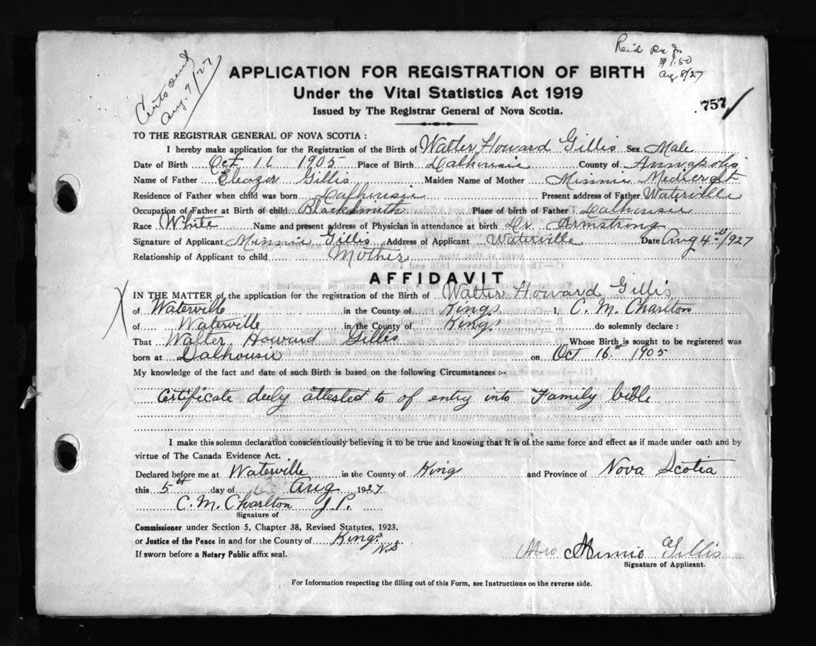 Certs sent
Aug 9/27
Aug 8/27
$1.50
757
APPLICATION FOR REGISTRATION OF BIRTH
Under the Vital Statistics Act 1919
Issued by The Registrar General of Nova Scotia.
TO THE REGISTRAR GENERAL OF NOVA SCOTIA :
I hereby make application for the Registration of the Birth of Walter Howard Gillis Sex Male
Date of Birth Oct 16 1905 Place of Birth Dalhousie County of Annapolis
Name of Father Eleazor Gillis Maiden Name of Mother Minnie
Residence of Father when child was born Dalhousie Present address of Father Waterville
Occupation of Father at Birth of child Blacksmith Place of birth of Father Dalhousie
Race White Name and present address of Physician in attendance at birth Dr. Armstrong
Signature of Applicant Minnie Gillis Address of Applicant Waterville Date Aug 4th 1927
Relationship of Applicant to child Mother
AFFIDAVIT
IN THE MATTER of the application for the registration of the Birth of Walter Howard Gillis
of Waterville in the County of Kings I, C. M. Charlton
of Waterville in the County of Kings do solemnly declare :
That Walter Howard Gillis Whose Birth is sought to be registered was
born at Dalhousie on Oct 16th 1905
My knowledge of the fact and date of such Birth is based on the following Circumstances :-
Certificate duly attested to of entry into Family bible
I make this solemn declaration conscientiously believing it to be true and knowing that it is of the same force and effect as if made under oath and by
virtue of The Canada Evidence Act.
Declared before me at Waterville in the County of King and Province of Nova Scotia
this 5th day of Aug 1927
C. M. Charlton J.P.
Signature of
Commissioner under Section 5, Chapter 38, Revised Statutes, 1923,
or Justice of the Peace in and for the County of Kings N.S
If sworn before a Notary Public affix seal.
Mrs Minnie Gillis
Signature of Applicant.
For Information respecting the filling out of this Form, see Instructions on the reverse side.